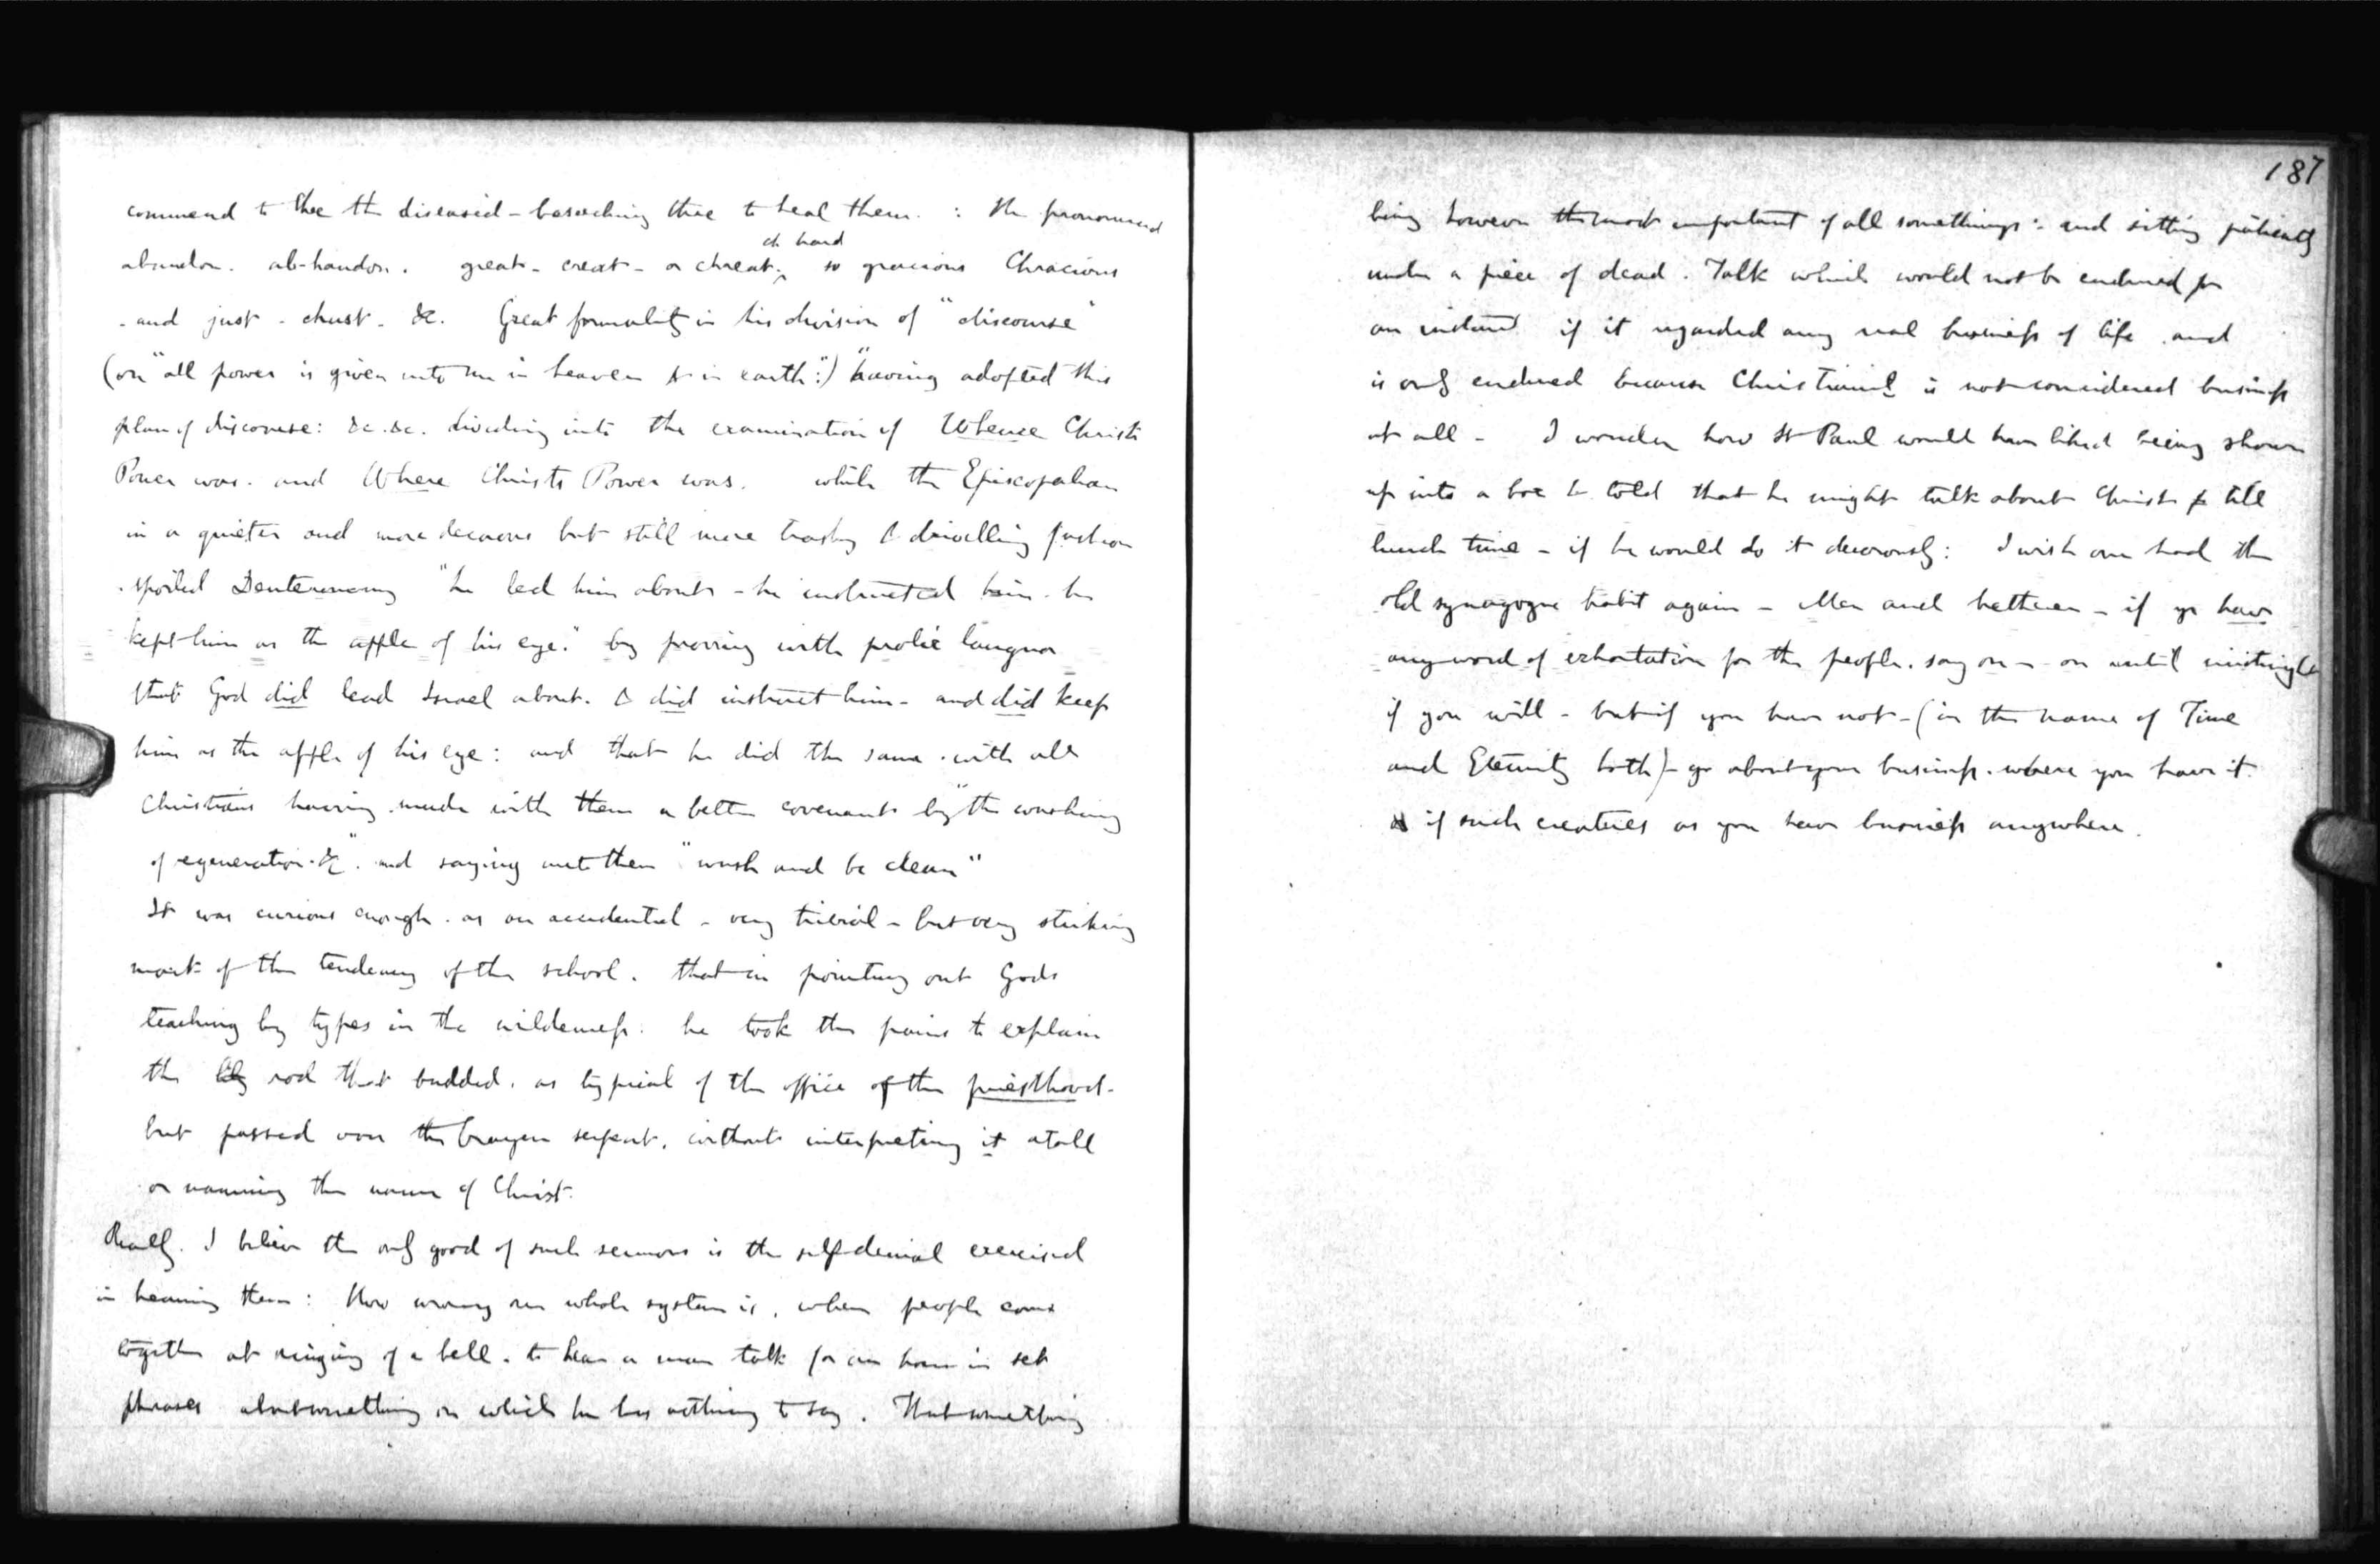 commend to thee the diseased - beseeching thee to heal them. : He pronounced
ch hard
abandon. ab-handon. great - creat - or chreat. so gracious Chracious
- and just - chust - &c. Great formality in his division of "discourse"
(on "all power is given unto me in heaven & in earth":) "having adopted this
plan of discourse: &c. &c. dividing into the examination of Whence Christs
Power was. and Where Christs Power was. while the Episcopalian
in a quieter and more decorous but still more trashy & drivelling fashion
spoiled Deuteronomy "he led him about - he instructed him - he
kept him as the apple of his eye." by proving with prolix languor
that God did lead Israel about. & did instruct him - and did keep
him as the apple of his eye: and that he did the same with all
Christians having made with them a better covenant by "the washing
of regeneration &c". and saying unto them "wash and be clean"
It was curious enough. as an accidental - very trivial - but very striking
mark of the tendency of the school. that in pointing out Gods
teaching by types in the wilderness. he took the pains to explain
the rod that budded. as typical of the office of the priesthood -
but passed over the brazen serpent. without interpreting it at all
or naming the name of Christ.
Really. I believe the only good of such sermons is the self denial exercised
in hearing them: How wrong our whole system is, when people come
together at ringing of a bell. to hear a man talk for an hour in set
phrases about something on which he has nothing to say. That something
187
being however the most important of all somethings: and sitting patiently
under a piece of dead. Talk which would not be endured for
an instant if it regarded any real business of life and
is only endured because Christianity is not considered business
at all - I wonder how St Paul would have liked being shown
up into a box & told that he might talk about Christ till
lunch time - if he would do it decorously: I wish one had the
old synagogue habit again - Men and brethren - if ye have
any word of exhortation for the people. say on - on until midnight
if you will - but if you have not - (in the name of Time
and Eternity both) - go about your business. where you have it.
if such creatures as you have business anywhere.